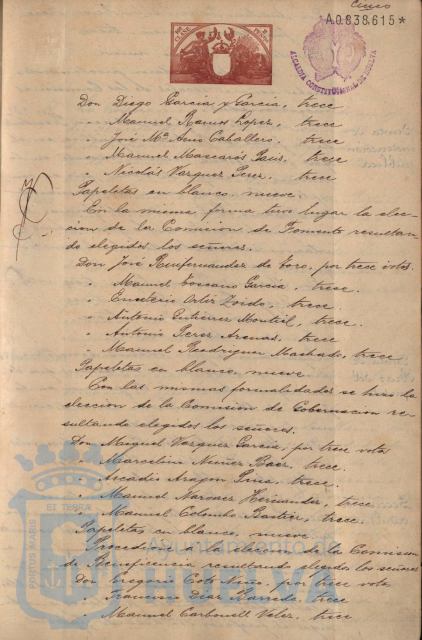 Cinco
A0.838.615*
ALCALDIA CONSTITUCIONAL DE HUELVA
Don Diego Garcia y Garcia, trece
" Manuel Ramos Lopez, trece
" José Mª Amo Caballero, trece
" Manuel Mascarós, trece
" Nicolás Vazquez Perez, trece
Papeletas en blanco, nueve.
En la misma forma tuvo lugar la elec-
cion de la Comision de Fomento resultan-
do elegidos los señores.
Don José Fernandez de Toro, por trece votos
" Manuel Toscano Garcia, trece.
" Emeterio Ortiz Toido, trece.
" Antonio Gutierrez Montiel, trece.
" Antonio Perez Arenas, trece.
" Manuel Rodriguez Machado, trece
Papeletas en blanco, nueve
Con las mismas formalidades se hizo la
eleccion de la Comision de Gobernacion re-
sultando elegidos los señores.
Don Miguel Vazquez Garcia, por trece votos
" Marcelino Nuñez Baez, trece.
" Arcadio Aragon, trece.
" Manuel Narvaez Hernandez, trece
" Manuel Colombo, trece.
Papeletas en blanco, nueve
Procedióse á la eleccion de la Comision
de Beneficencia resultando elegidos los señores
Don Gregorio Coto, por trece votos
" Francisco Diaz, trece
" Manuel Carbonell Velez, trece
PORTUS MARIS
ET TERRAE
Ayuntamiento de
HUELVA